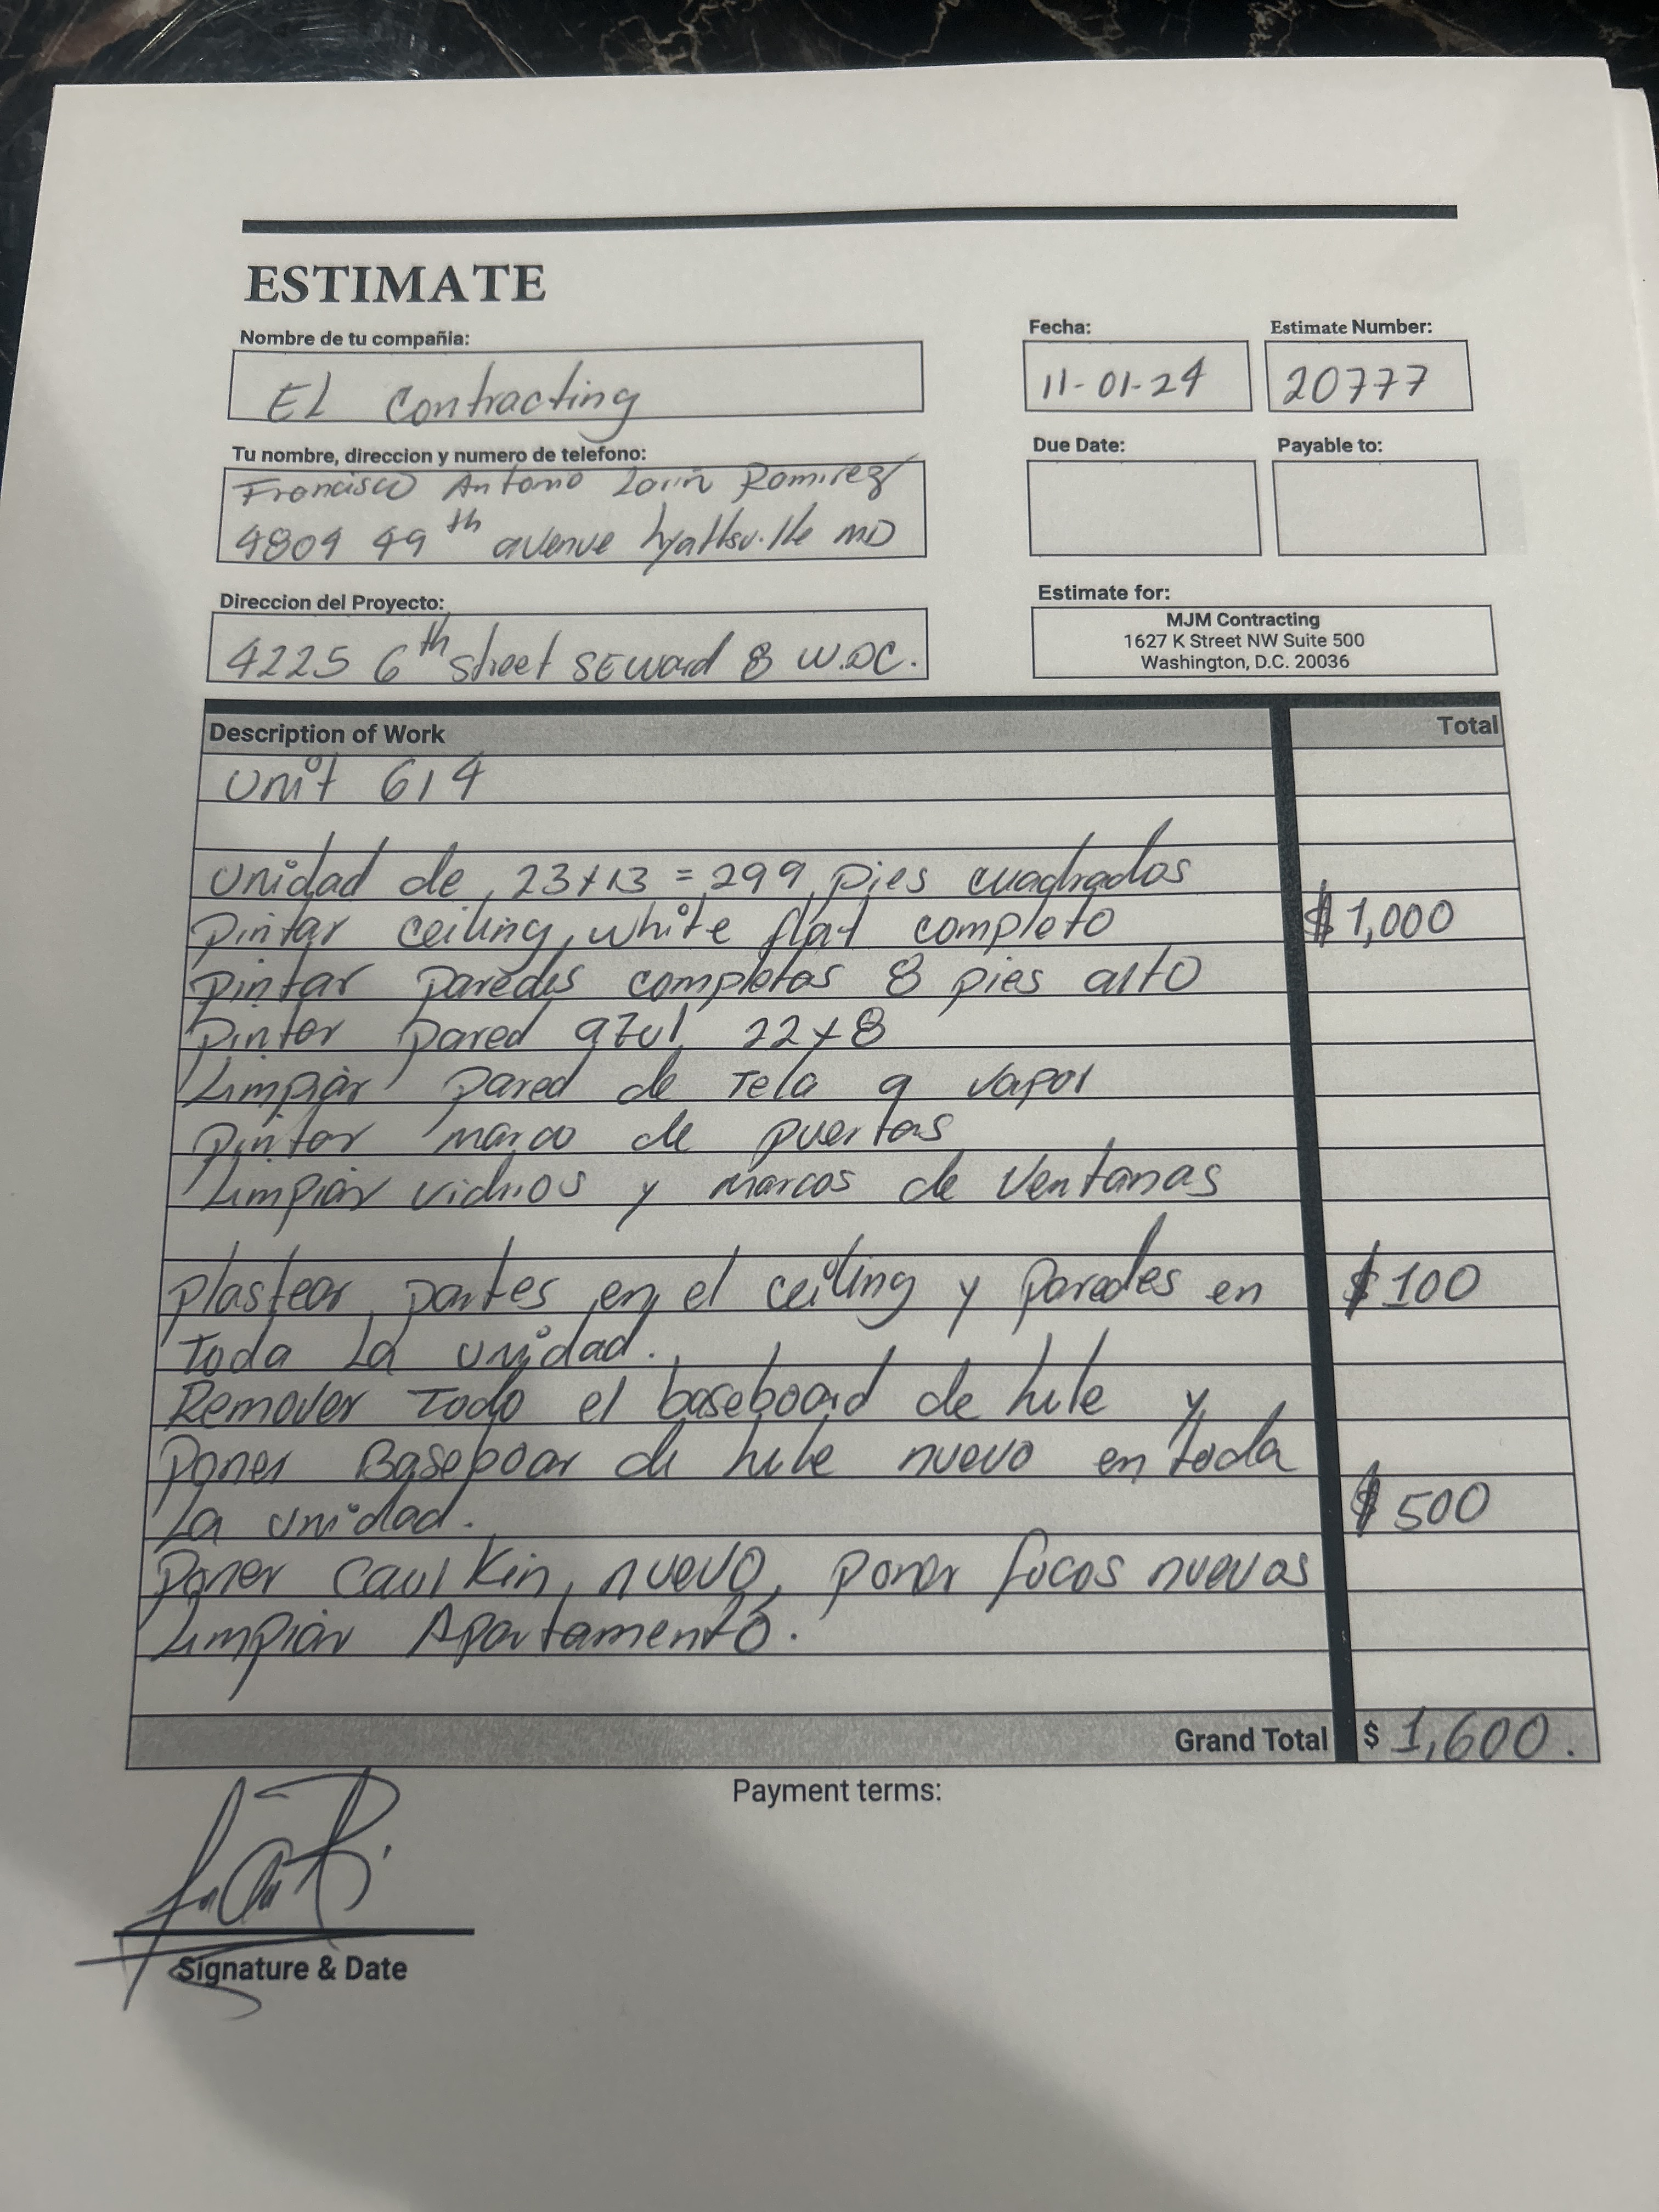 ESTIMATE
Nombre de tu compañia:
EL Contracting
Fecha:
11-01-24
Estimate Number:
20777
Tu nombre, direccion y numero de telefono:
Francisco Antonio Ramirez
4804 49th avenue hyattsville MD
Due Date:
Payable to:
Direccion del Proyecto:
4225 6th street SE Ward 8 W.DC.
Estimate for:
MJM Contracting
1627 K Street NW Suite 500
Washington, D.C. 20036
Description of Work Total
Unit 614
Unidad de 23x13 = 299 pies cuadrados
Pintar ceiling, white flat completo $1,000
Pintar paredes completas 8 pies alto
Pintar pared azul 22x8
Limpiar pared de Tela a vapor
Pintar marco de puertas
Limpiar vidrios y marcos de ventanas
Plastear partes en el ceiling y paredes en $100
Toda La unidad.
Remover Todo el baseboard de hule y
Poner Baseboar de hule nuevo en toda
La unidad. $500
Poner Caulkin, nuevo, poner focos nuevos
Limpiar Apartamento.
Grand Total $ 1,600.
Payment terms:
Signature & Date